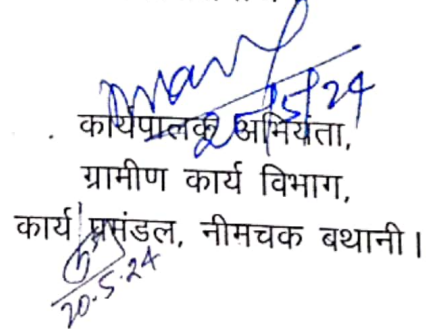 25/5/24
कार्यपालक अभियंता,
ग्रामीण कार्य विभाग,
कार्य प्रमंडल, नीमचक बथानी।
20.5.24